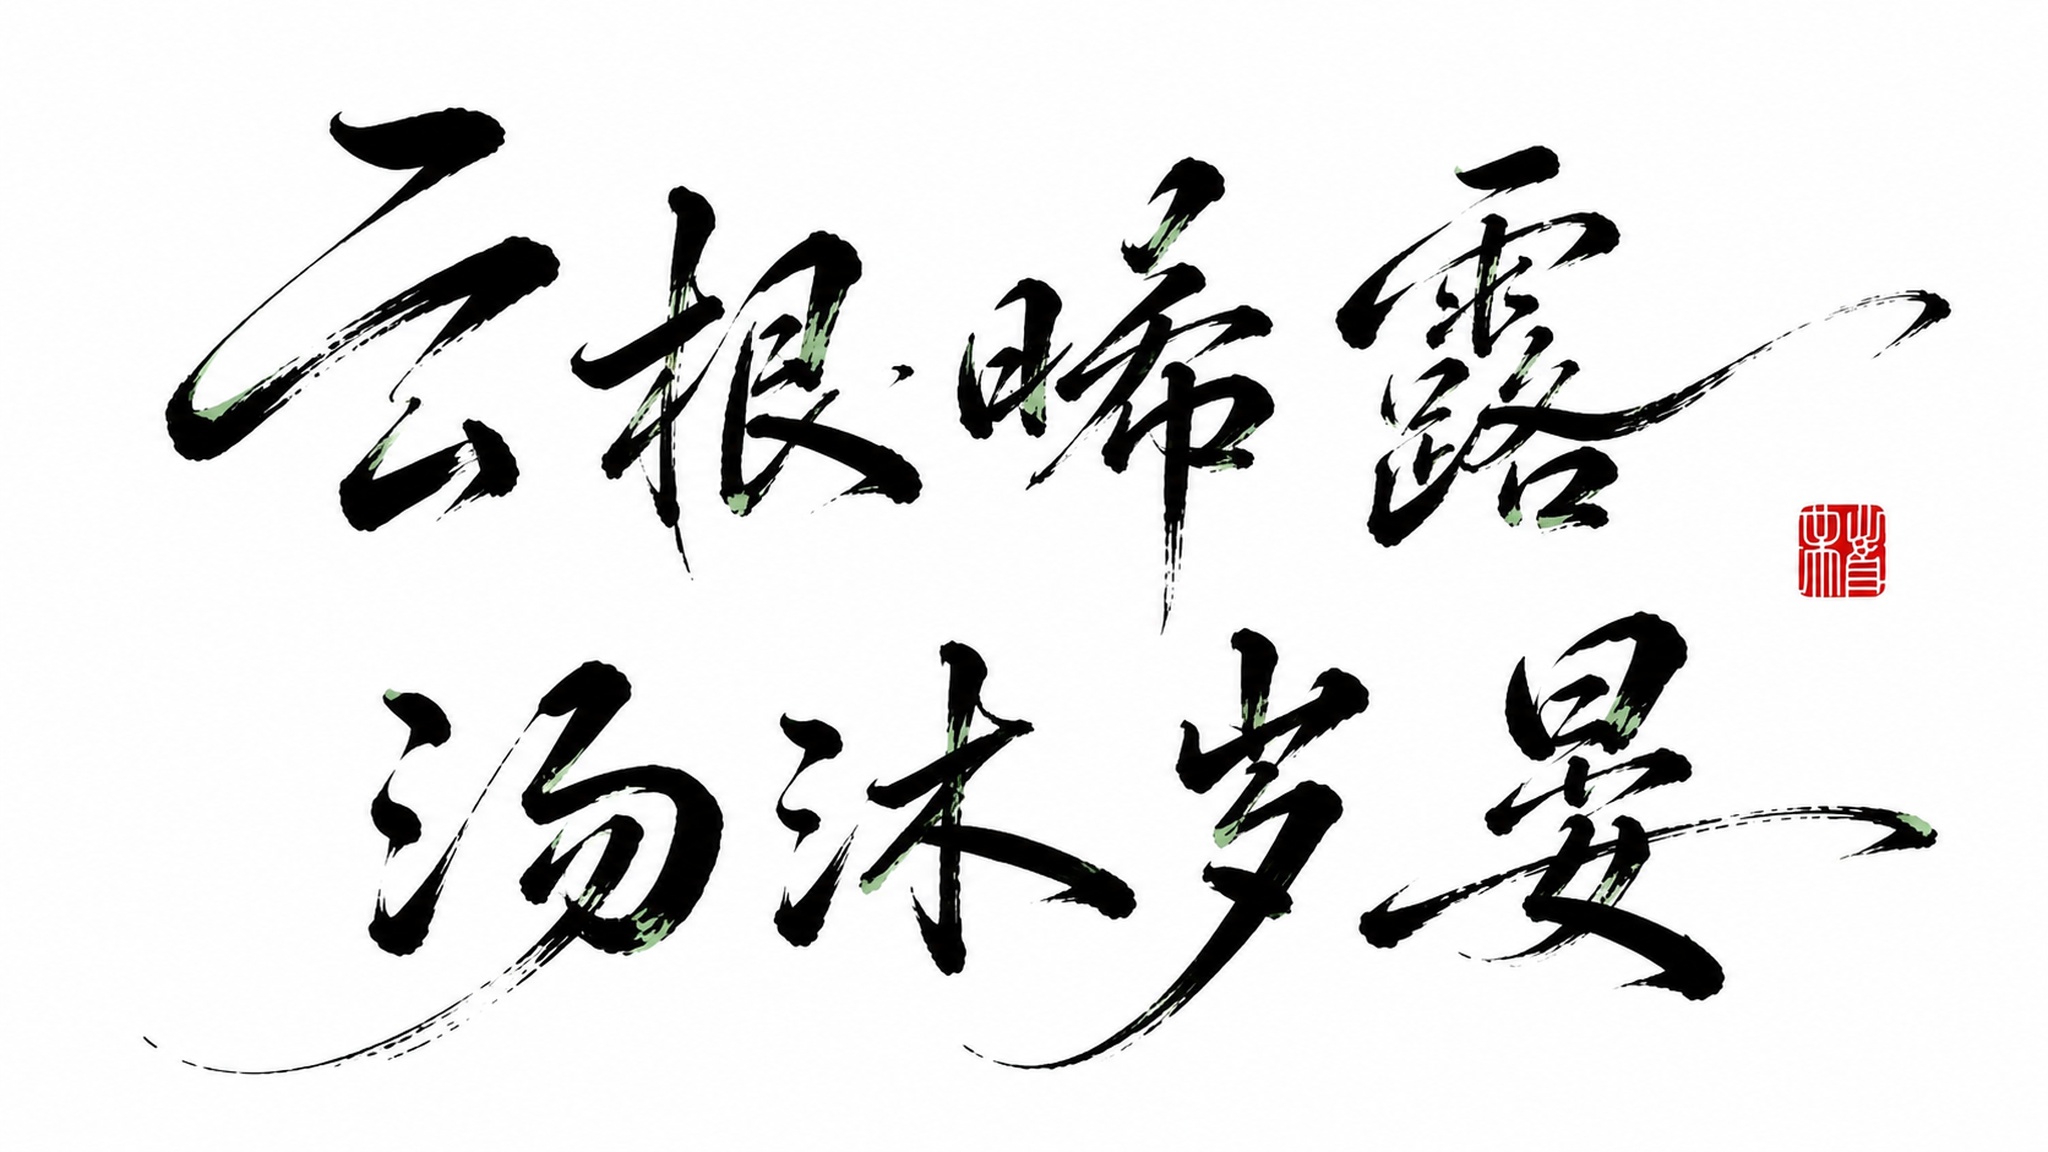 云根·晞露
汤沐岁晏